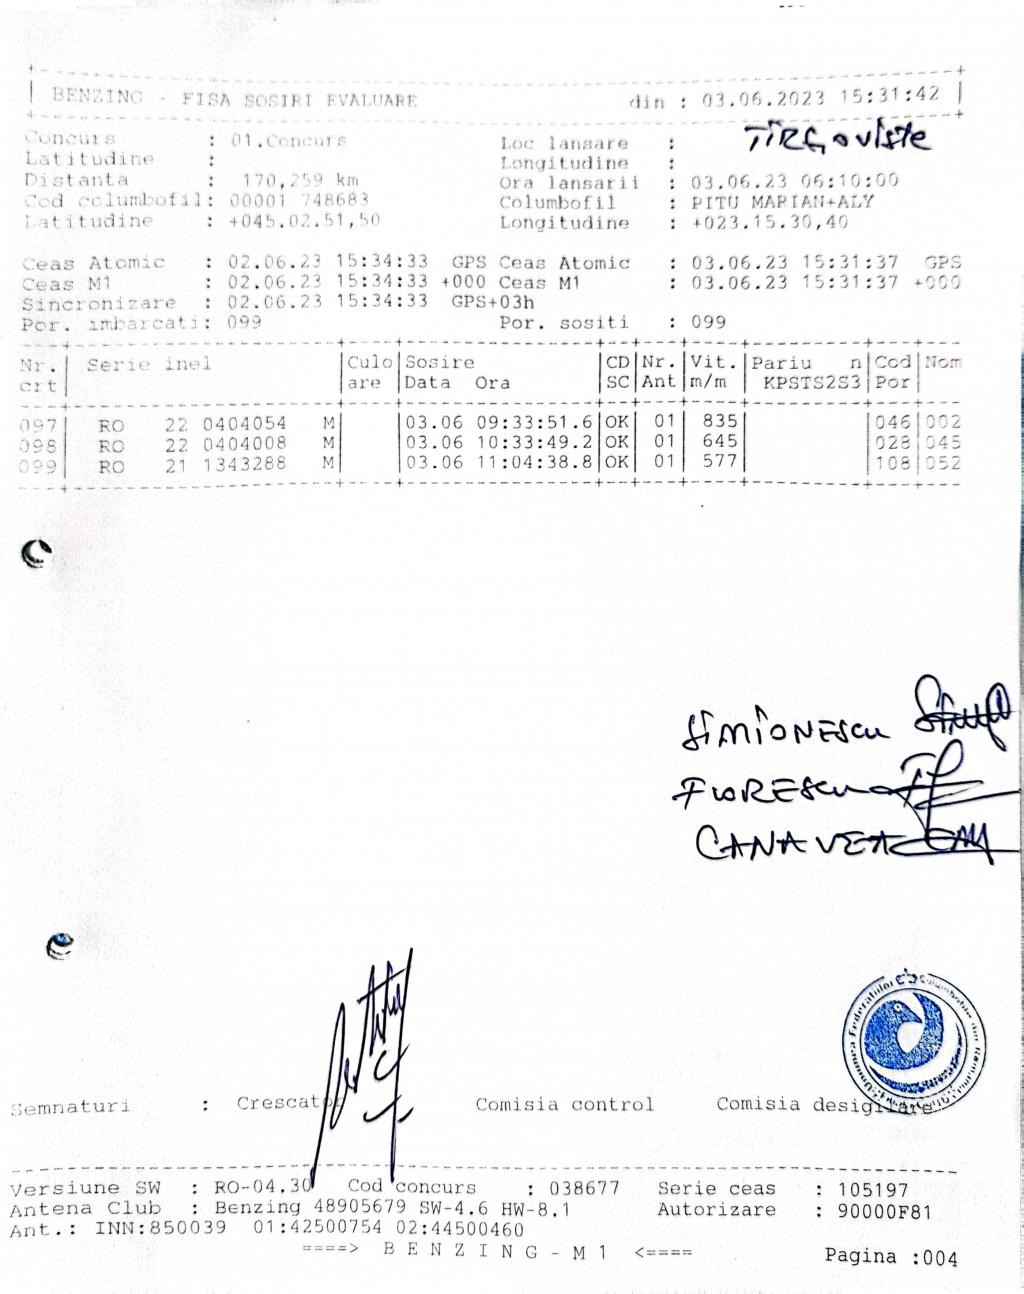 BENZING - FISA SOSIRI EVALUARE din : 03.06.2023 15:31:42
Concurs : 01.Concurs Loc lansare : TîRGovişte
Latitudine : Longitudine :
Distanta : 170,259 km Ora lansarii : 03.06.23 06:10:00
Cod columbofil: 00001 748683 Columbofil : PITU MARIAN+ALY
Latitudine : +045.02.51,50 Longitudine : +023.15.30,40
Ceas Atomic : 02.06.23 15:34:33 GPS Ceas Atomic : 03.06.23 15:31:37 GPS
Ceas M1 : 02.06.23 15:34:33 +000 Ceas M1 : 03.06.23 15:31:37 +000
Sincronizare : 02.06.23 15:34:33 GPS+03h
Por. imbarcati: 099 Por. sositi : 099
Nr. Serie inel Culo Sosire CD Nr. Vit. Pariu n Cod Nom
crt are Data Ora SC Ant m/m KPSTS2S3 Por
097 RO 22 0404054 M 03.06 09:33:51.6 OK 01 835 046 002
098 RO 22 0404008 M 03.06 10:33:49.2 OK 01 645 028 045
099 RO 21 1343288 M 03.06 11:04:38.8 OK 01 577 108 052
SIMIONESCU
FLORESCU
CANAVEA
Semnaturi : Crescator Comisia control Comisia desigilare
Versiune SW : RO-04.30 Cod concurs : 038677 Serie ceas : 105197
Antena Club : Benzing 48905679 SW-4.6 HW-8.1 Autorizare : 90000F81
Ant.: INN:850039 01:42500754 02:44500460
====> B E N Z I N G - M 1 <====
Pagina :004